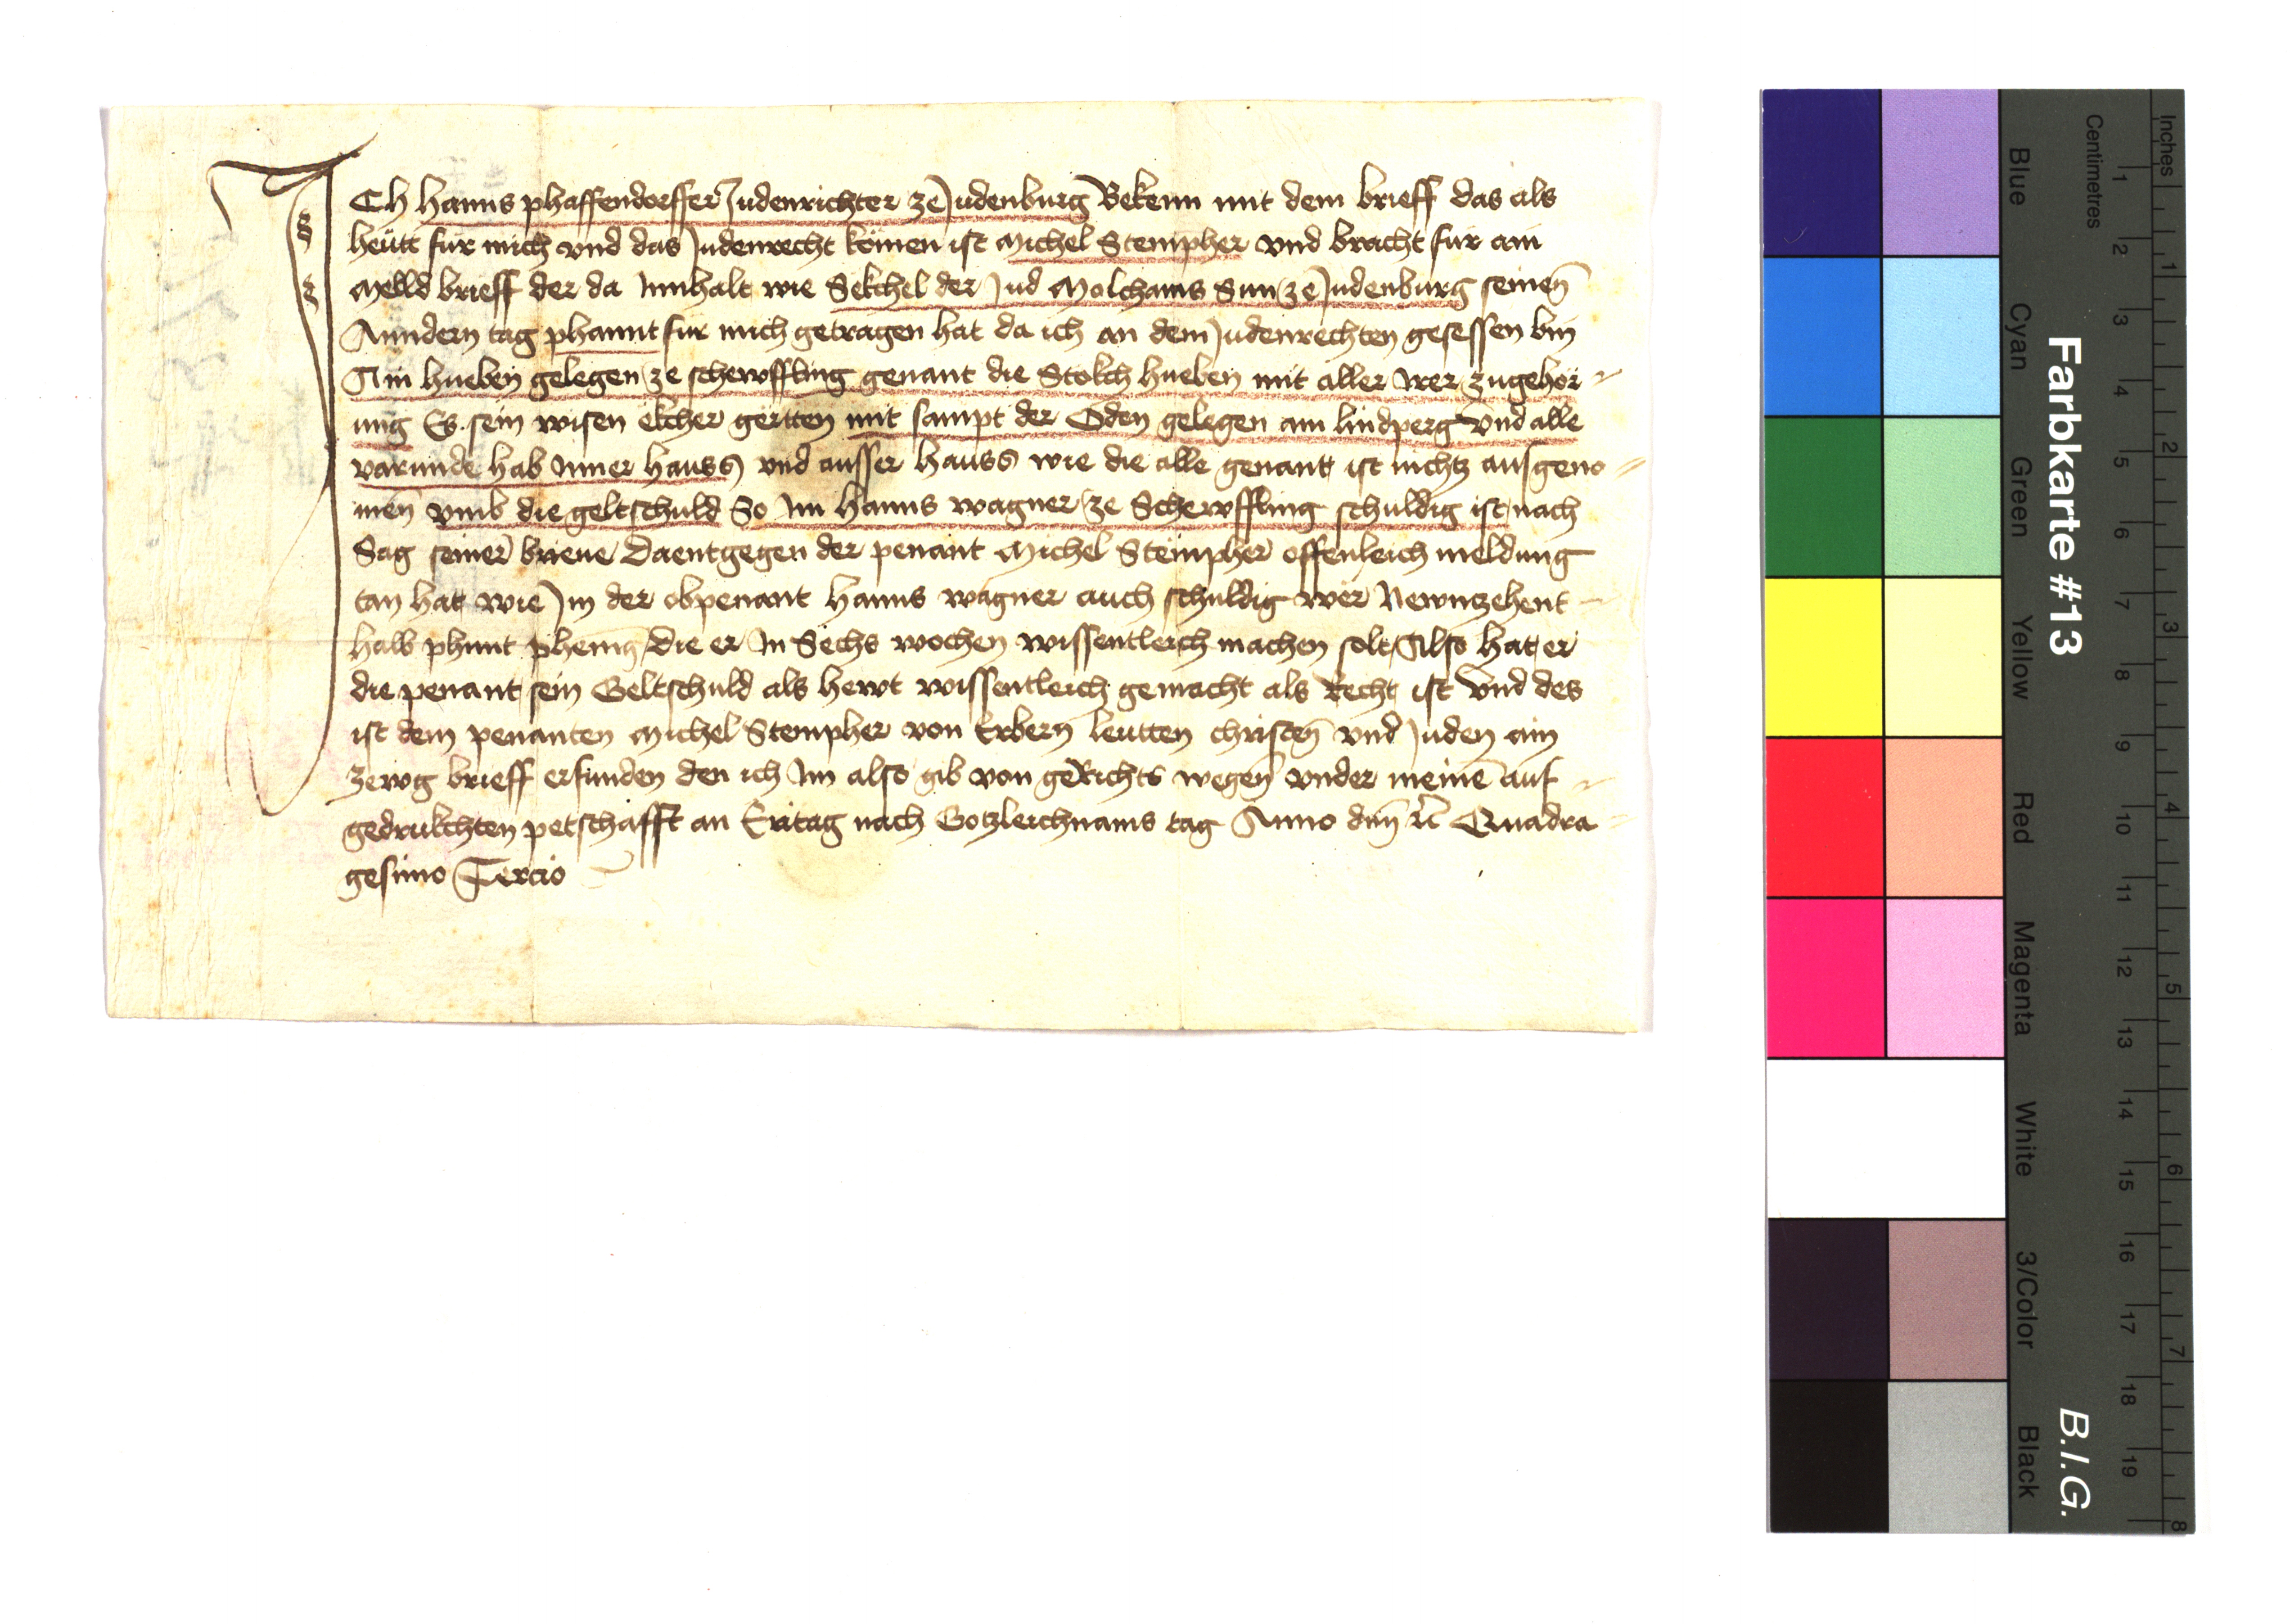 ICh Hanns phaffendorffer Judenrichter ze Judenburg Bekenn mit dem brieff das als
heütt für mich vnd das Judenrecht kömen ist Michel Stempher vnd bracht für ain
Melld brieff der da Innhalt wie Sekchel der Jud Molchams Sun ze Judenburg seinen̄
Anndern tag phannt für mich getragen hat da ich an dem Judenrechten gesessen bin
Ain hueben gelegen ze schewffling genant die Stolch hueben mit aller irer zugehör
ung Es sein wisen ekcher gërtten mit sampt der Öden gelegen am lindperg Vnd alle
varunde hab Inner hauss vnd ausser hauss wie die alle genant ist nichtz ausgeno
men̄ vmb die geltschuld So Im Hanns wagner ze Schewffling schuldig ist nach
Sag seiner brieue Daentgegen der penant Michel Stëmpher offenleich meldung
tan hat wie Jm der obpenant Hanns wagner auch schuldig wër Newnzehent
halb phunt phenīg die er In Sechs wochen wissentleich machen solt Also hat er
die penant sein Geltschuld als hewt wissentleich gemacht als Recht ist Vnd des
ist dem penanten Michel Stempher von Erbern̄ leutten christen̄ vnd Juden ain
zewg brieff erfunden den ich Im also gib von geRichts wegen vnder meinē auf
gedrukchten petschafft an Eritag nach Gotzleichnams tag Anno dn̄i rc̄ Quadra
gesimo Tercio
Farbkarte #13
B.I.G.
Inches
1 2 3 4 5 6 7 8
Centimetres
1 2 3 4 5 6 7 8 9 10 11 12 13 14 15 16 17 18 19
Blue Cyan Green Yellow Red Magenta White 3/Color Black